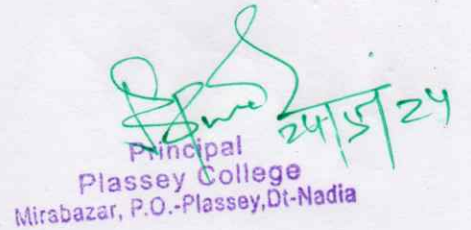 24/5/24
Principal
Plassey College
Mirabazar, P.O.-Plassey,Dt-Nadia